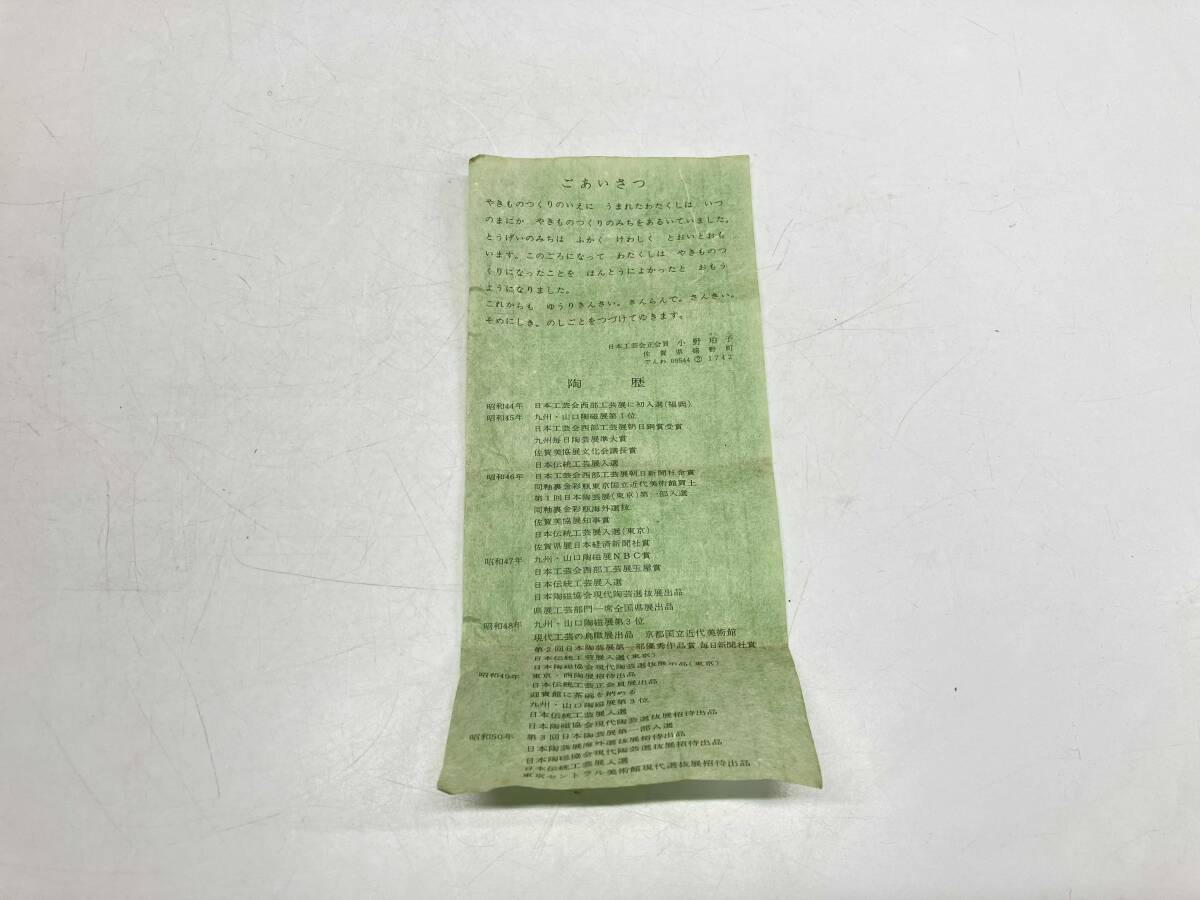 ごあいさつ
やきものつくりのいえに　うまれたわたくしは　いつ
のまにか　やきものつくりのみちをあるいていました。
とうげいのみちは　ふかく　けわしく　とおいとおも
います。このごろになって　わたくしは　やきものつ
くりになったことを　ほんとうによかったと　おもう
ようになりました。
これからも　ゆうりきんさい。きんらんで。さんさい。
そめにしき。のしごとをつづけてゆきます。
日本工芸会正会員　小野珀子
佐賀県嬉野町
でんわ 09544 ② 1742
陶　歴
昭和44年　日本工芸会西部工芸展に初入選(福岡)
昭和45年　九州・山口陶磁展第1位
日本工芸会西部工芸展朝日銅賞受賞
九州毎日陶芸展準大賞
佐賀美協展文化会議長賞
日本伝統工芸展入選
昭和46年　日本工芸会西部工芸展朝日新聞社金賞
同釉裏金彩瓶東京国立近代美術館買上
第1回日本陶芸展(東京)第一部入選
同釉裏金彩瓶海外選抜
佐賀美協展知事賞
日本伝統工芸展入選(東京)
佐賀県展日本経済新聞社賞
昭和47年　九州・山口陶磁展NBC賞
日本工芸会西部工芸展玉屋賞
日本伝統工芸展入選
日本陶磁協会現代陶芸選抜展出品
県展工芸部門一席全国県展出品
昭和48年　九州・山口陶磁展第3位
現代工芸の鳥瞰展出品　京都国立近代美術館
第2回日本陶芸展第一部優秀作品賞 毎日新聞社賞
日本伝統工芸展入選(東京)
日本陶磁協会現代陶芸選抜展出品(東京)
昭和49年　東京・西陶展招待出品
日本伝統工芸正会員展出品
迎賓館に茶碗を納める
九州・山口陶磁展第3位
日本伝統工芸展入選
日本陶磁協会現代陶芸選抜展招待出品
昭和50年　第3回日本陶芸展第一部入選
日本陶芸展海外選抜展招待出品
日本陶磁協会現代陶芸選抜展招待出品
日本伝統工芸展入選
東京セントラル美術館現代選抜展招待出品